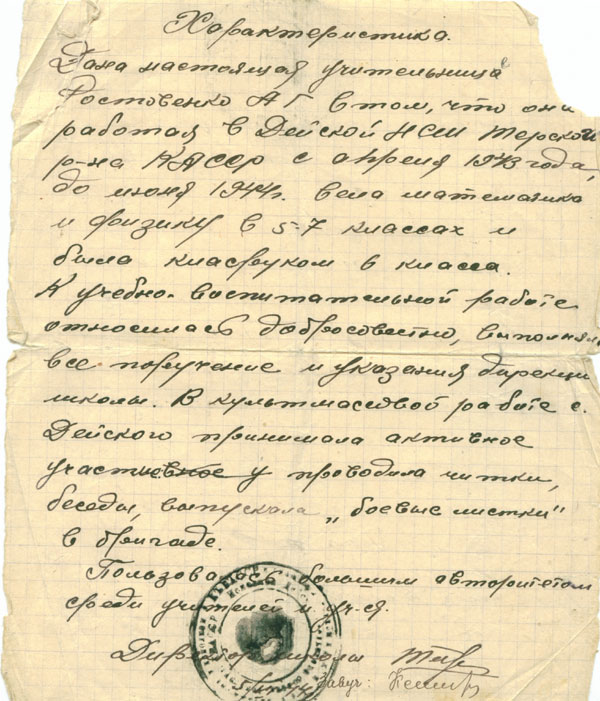 Характеристика.
Дана настоящая учительница
Ростовенко А Г в том, что она
работая в Дейской НСШ Терской
р-на КАССР с апреля 1943 года,
до июня 1944г. вела математика
и физику в 5-7 классах и
была класруком в класса.
К учебно-воспитательной работе
относилась добросовестно, выполняла
все поручение и указания дирекци
школы. В культмассовой работе с.
Дейского принимала активное
участиевное у проводила читки,
беседы, выпускала „боевые листки"
в бригаде.
Пользова большим авторитетом
среди учителей и уч-ся.
Директор школы
Завуч: